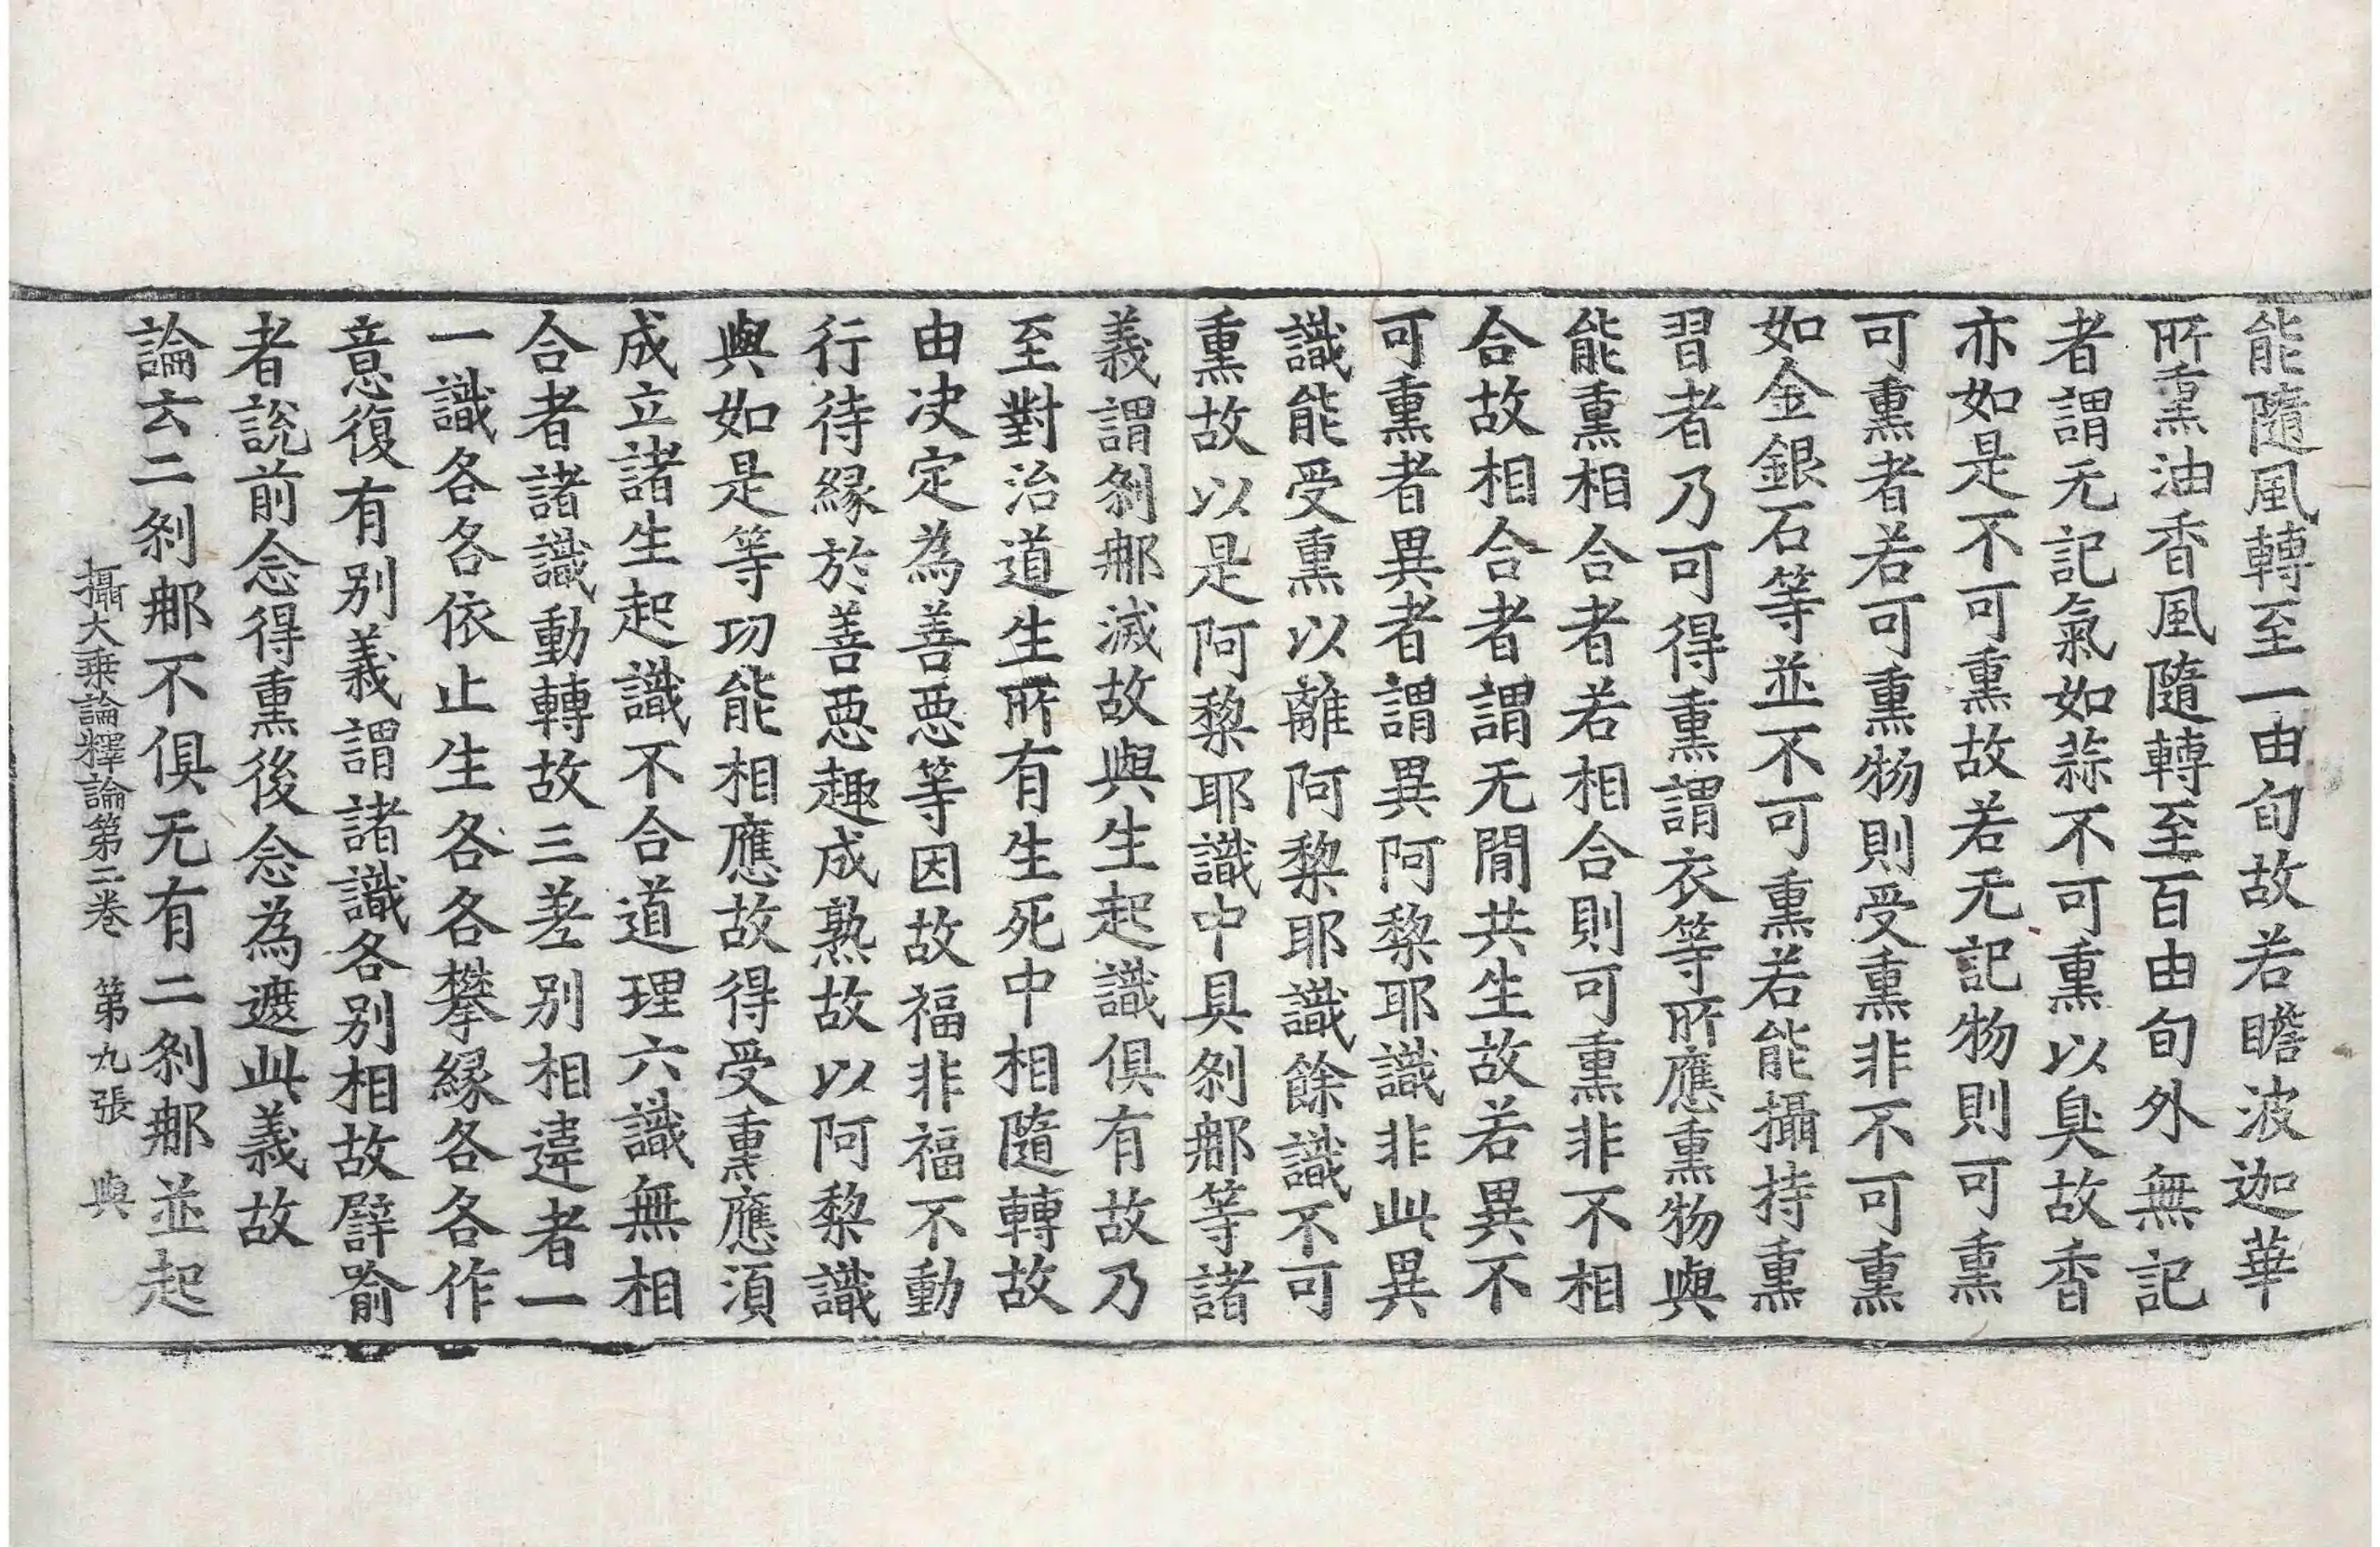 能隨風轉至一由旬故若瞻波迦華
所熏油香風隨轉至百由旬外無記
者謂无記氣如蒜不可熏以臭故香
亦如是不可熏故若无記物則可熏
可熏者若可熏物則受熏非不可熏
如金銀石等並不可熏若能攝持熏
習者乃可得熏謂衣等所應熏物與
能熏相合者若相合則可熏非不相
合故相合者謂无間共生故若異不
可熏者異者謂異阿黎耶識非此異
識能受熏以離阿黎耶識餘識不可
熏故以是阿黎耶識中具刹那等諸
義謂刹那滅故與生起識俱有故乃
至對治道生所有生死中相隨轉故
由决定為善惡等因故福非福不動
行待縁於善惡趣成熟故以阿黎識
與如是等功能相應故得受熏應湏
成立諸生起識不合道理六識無相
合者諸識動轉故三差别相違者一
一識各各依止生各各攀縁各各作
意復有别義謂諸識各别相故譬喻
者説前念得熏後念為遮此義故
論云二刹那不俱无有二刹那並起
攝大乗論釋論第二卷　第九張　與